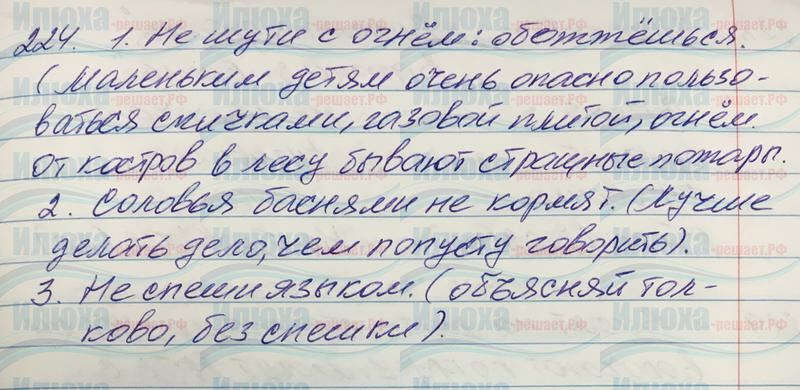 224. 1. Не шути с огнём: обожжёшься.
(Маленьким детям очень опасно пользо-
ваться спичками, газовой плитой, огнём.
от костров в лесу бывают страшные пожары.
2. Соловья баснями не кормят. (Лучше
делать дело, чем попусту говорить).
3. Не спеши языком. (объясняй тол-
ково, без спешки).
Илюха-решает.РФ